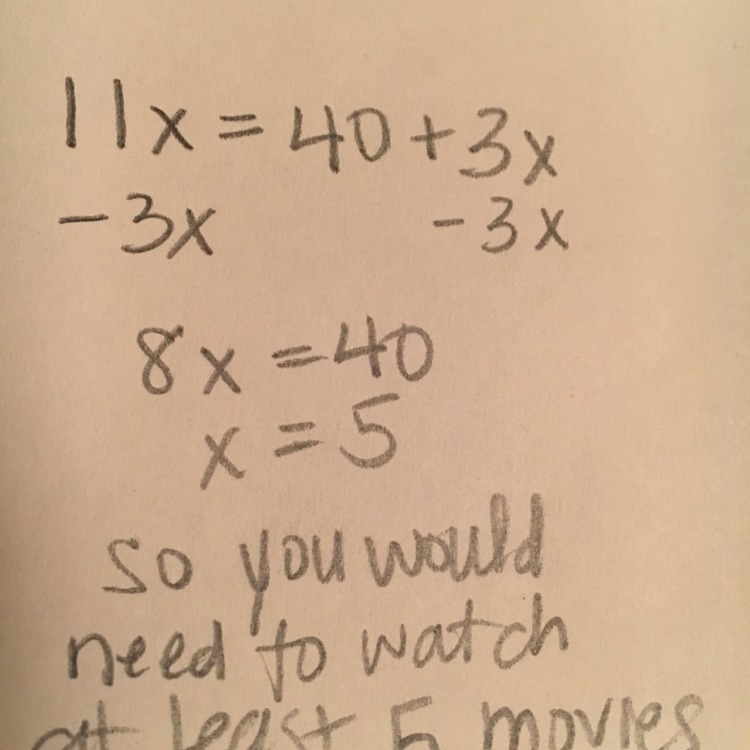 11x = 40 + 3x
-3x -3x
8x = 40
x = 5
so you would
need to watch
at least 5 movies